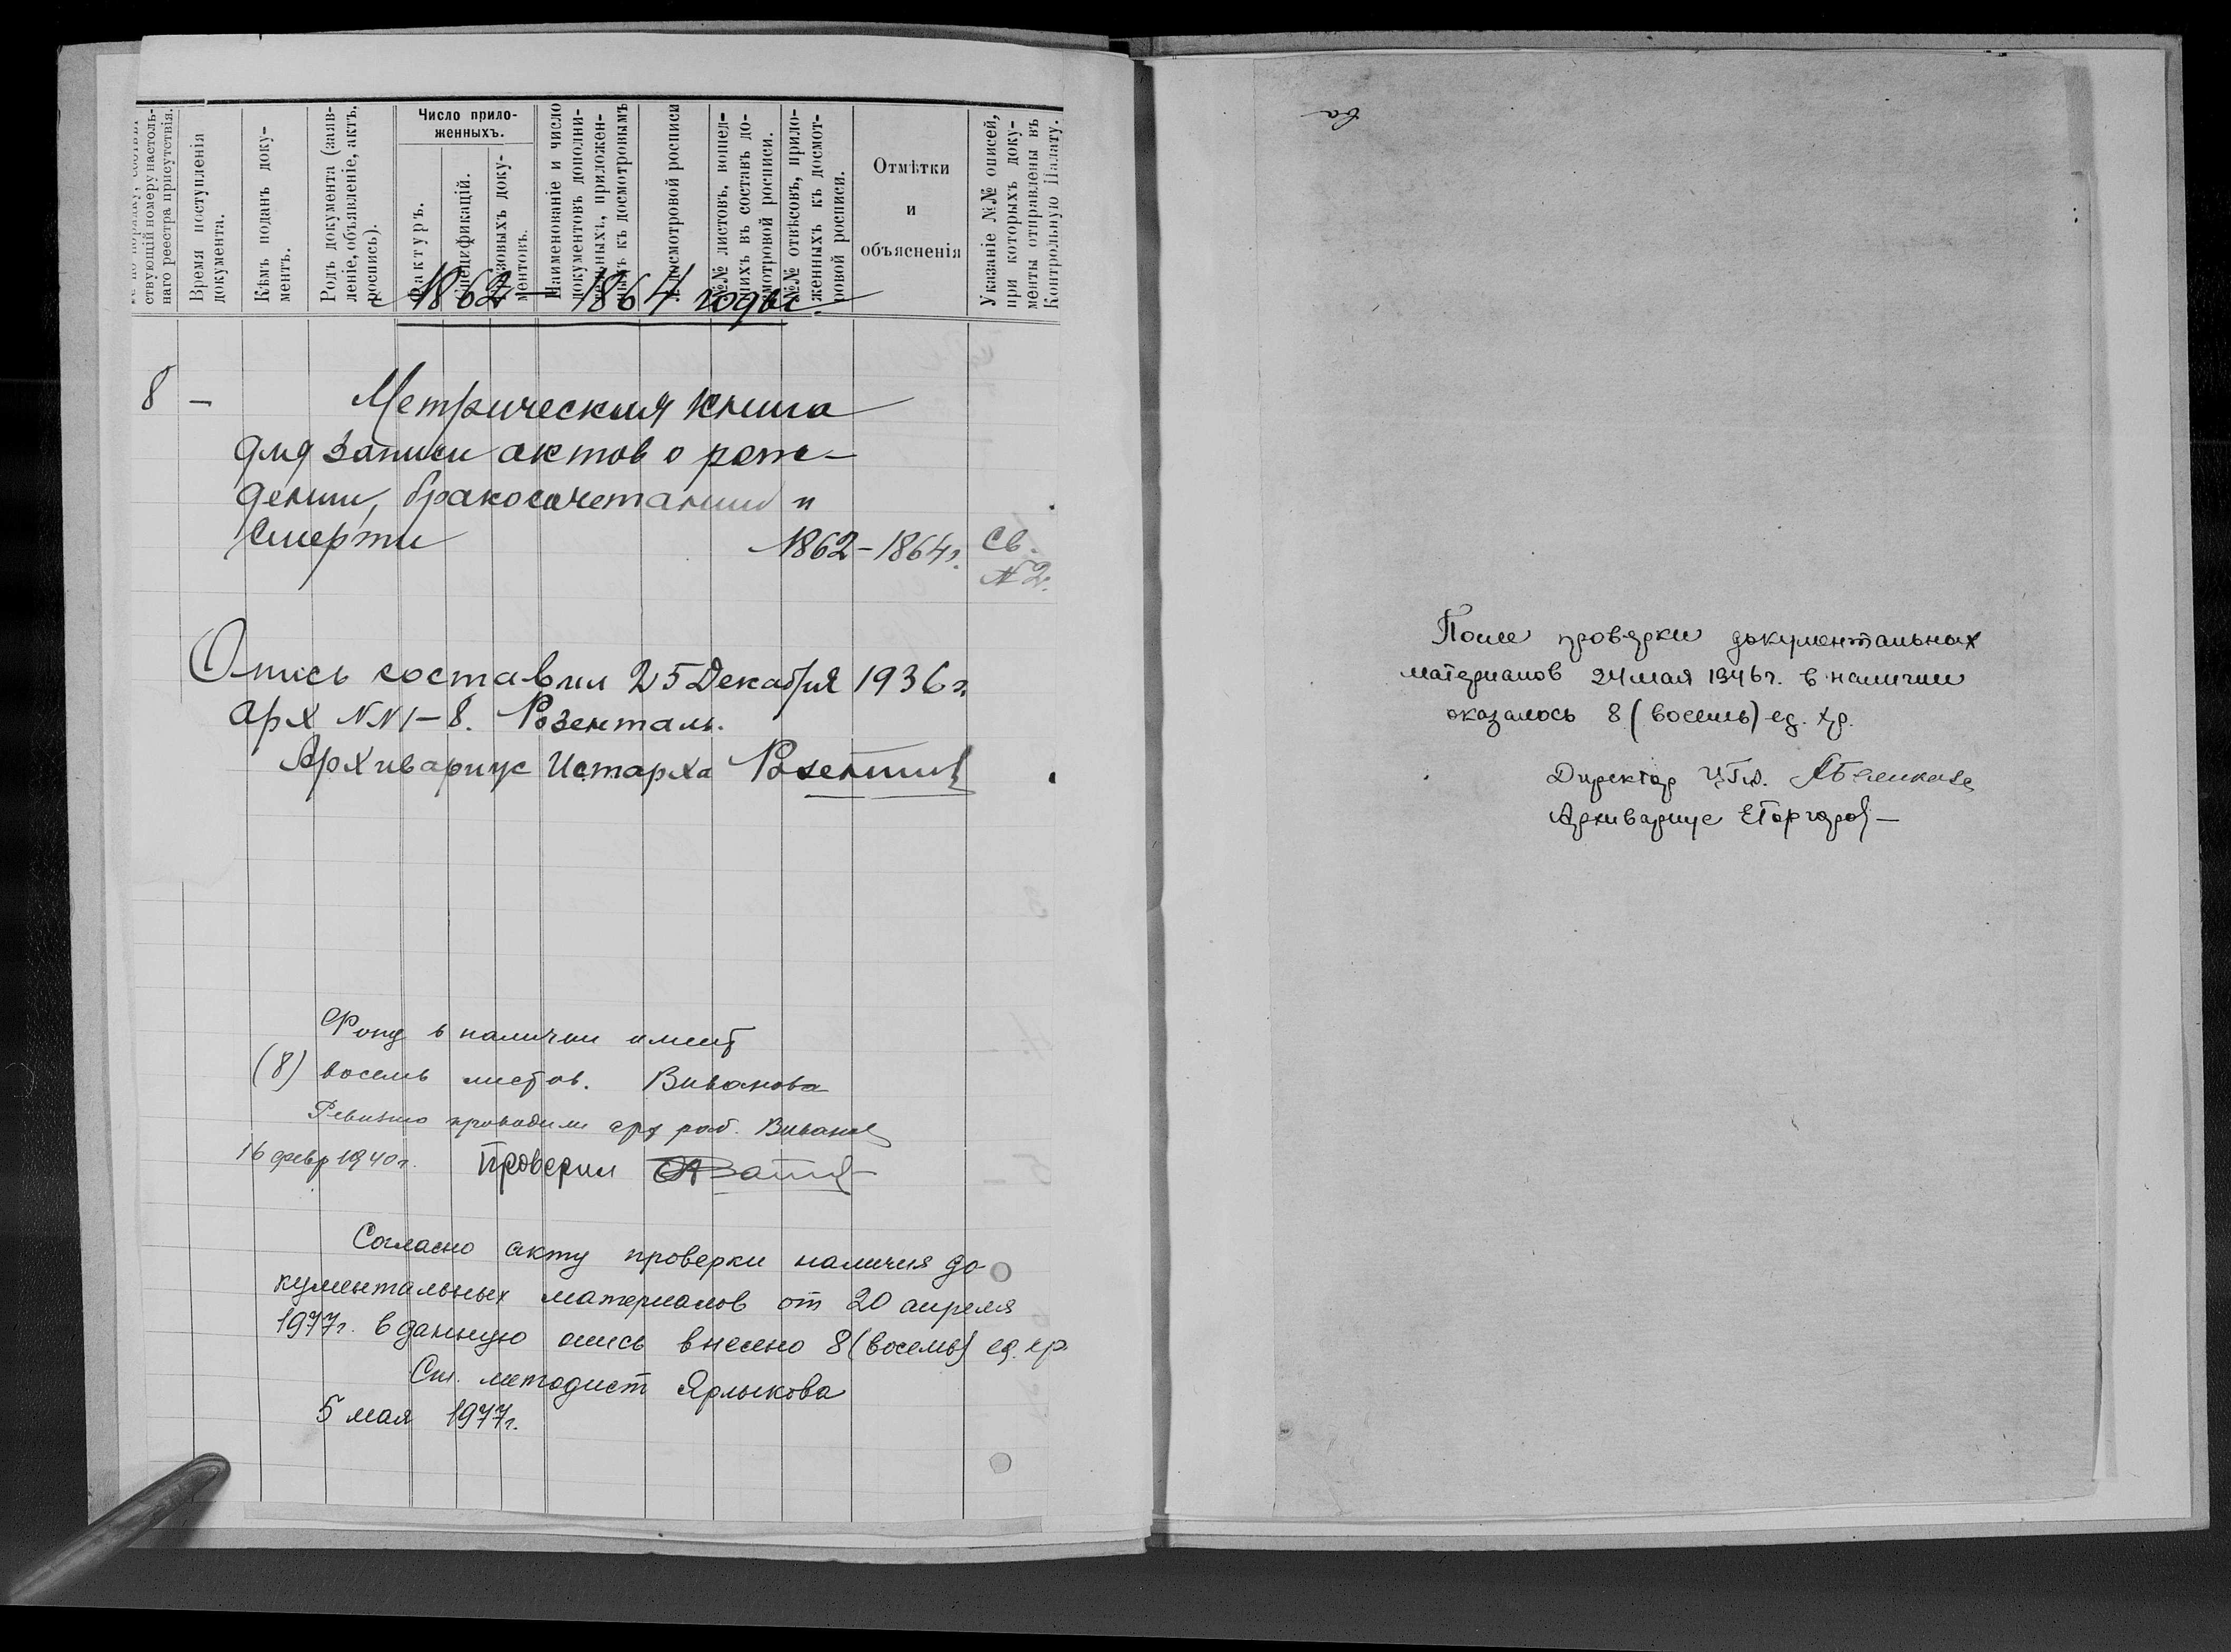 ствующій номеру настоль-
наго реестра присутствія.
Время поступленія
документа.
Кѣмъ поданъ доку-
ментъ.
Родъ документа (заяв-
леніе, объявленіе, актъ.
роспись).
Число прило-
женныхъ.
Фактуръ.
Спецификацій.
Грузовыхъ доку-
ментовъ.
Наименованіе и число
документовъ дополни-
тельныхъ, приложен-
ныхъ къ досмотровымъ
досмотровой росписи
№№ листовъ, вошед-
шихъ въ составъ до-
смотровой росписи.
№№ отвѣсовъ, прило-
женныхъ къ досмот-
ровой росписи.
Отмѣтки
и
объясненія
Указаніе №№ описей,
при которыхъ доку-
менты отправлены въ
Контрольную Палату.
1862 – 1864 годы.
8 – Метрическая книга
для записи актов о рож-
дении, бракосочетании и
смерти 1862 – 1864 г. Св.
№ 2.
Опись составил 25 Декабря 1936 г.
арх NN 1 – 8. Розенталь.
Архивариус Истарха
Фонд в наличии имеет
(8) восемь листов. Виванова
Ревизию проводили арх раб.
16 февр 1940 г. Проверил
Согласно акту проверки наличия до
кументальных материалов от 20 апреля
1977 г. в данную опись внесено 8 (восемь) ед. хр.
Ст. методист Ярлыкова
5 мая 1977 г.
После проверки документальных
материалов 24 мая 1946 г. в наличии
оказалось 8 (восемь) ед. хр.
Директор
Архивариус